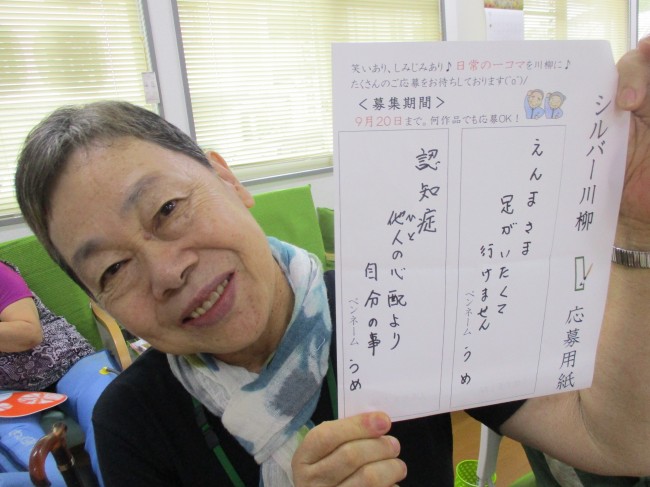 笑いあり、しみじみあり♪日常の一コマを川柳に♪
たくさんのご応募をお待ちしております(^o^)/
＜募集期間＞
9月20日まで。何作品でも応募OK！
シルバー川柳 応募用紙
えんまさま
足がいたくて
行けません
ペンネーム うめ
認知症
他人の心配より
ひと
自分の事
ペンネーム うめ